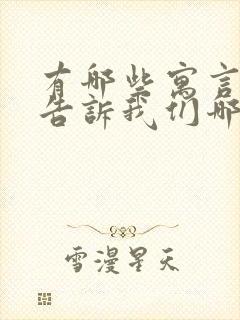 有哪些寓言
告訴我们哪
雪漫星天